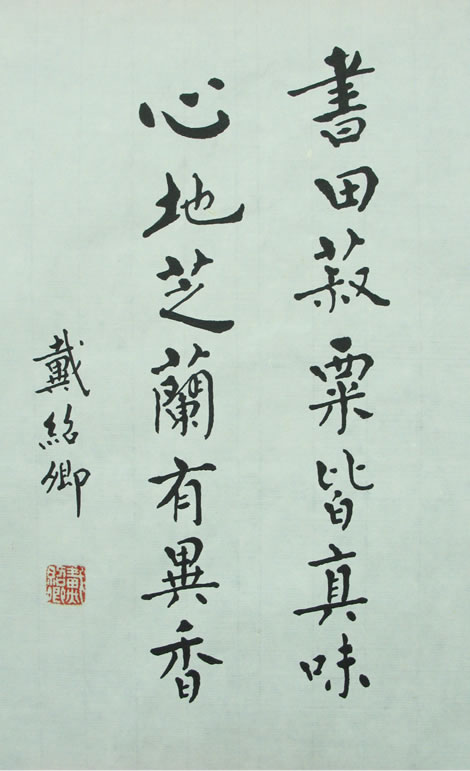 書田菽粟皆真味
心地芝蘭有異香
戴紹卿
戴紹卿